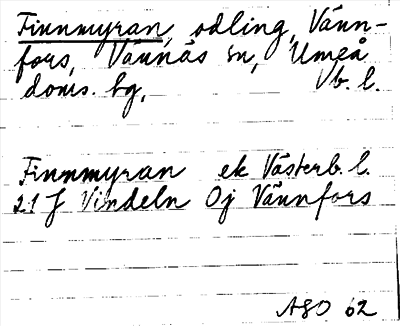 Finnmyran, odling, Vänn-
fors, Vännäs sn, Umeå
doms. hg, Vb. l.
Finnmyran ek Västerb. l.
21 J Vindeln Oj Vännfors
ASO 62